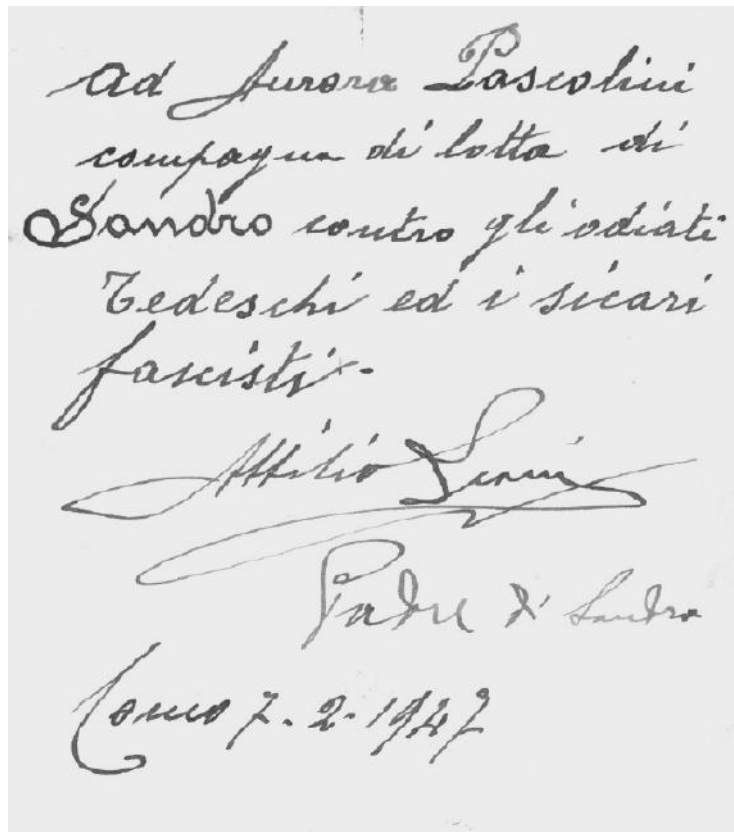 ad Aurora Pascolini
compagna di lotta di
Sandro contro gli odiati
Tedeschi ed i sicari
fascisti -
Attilio
Padre di Sandro
Como 7-2-1947